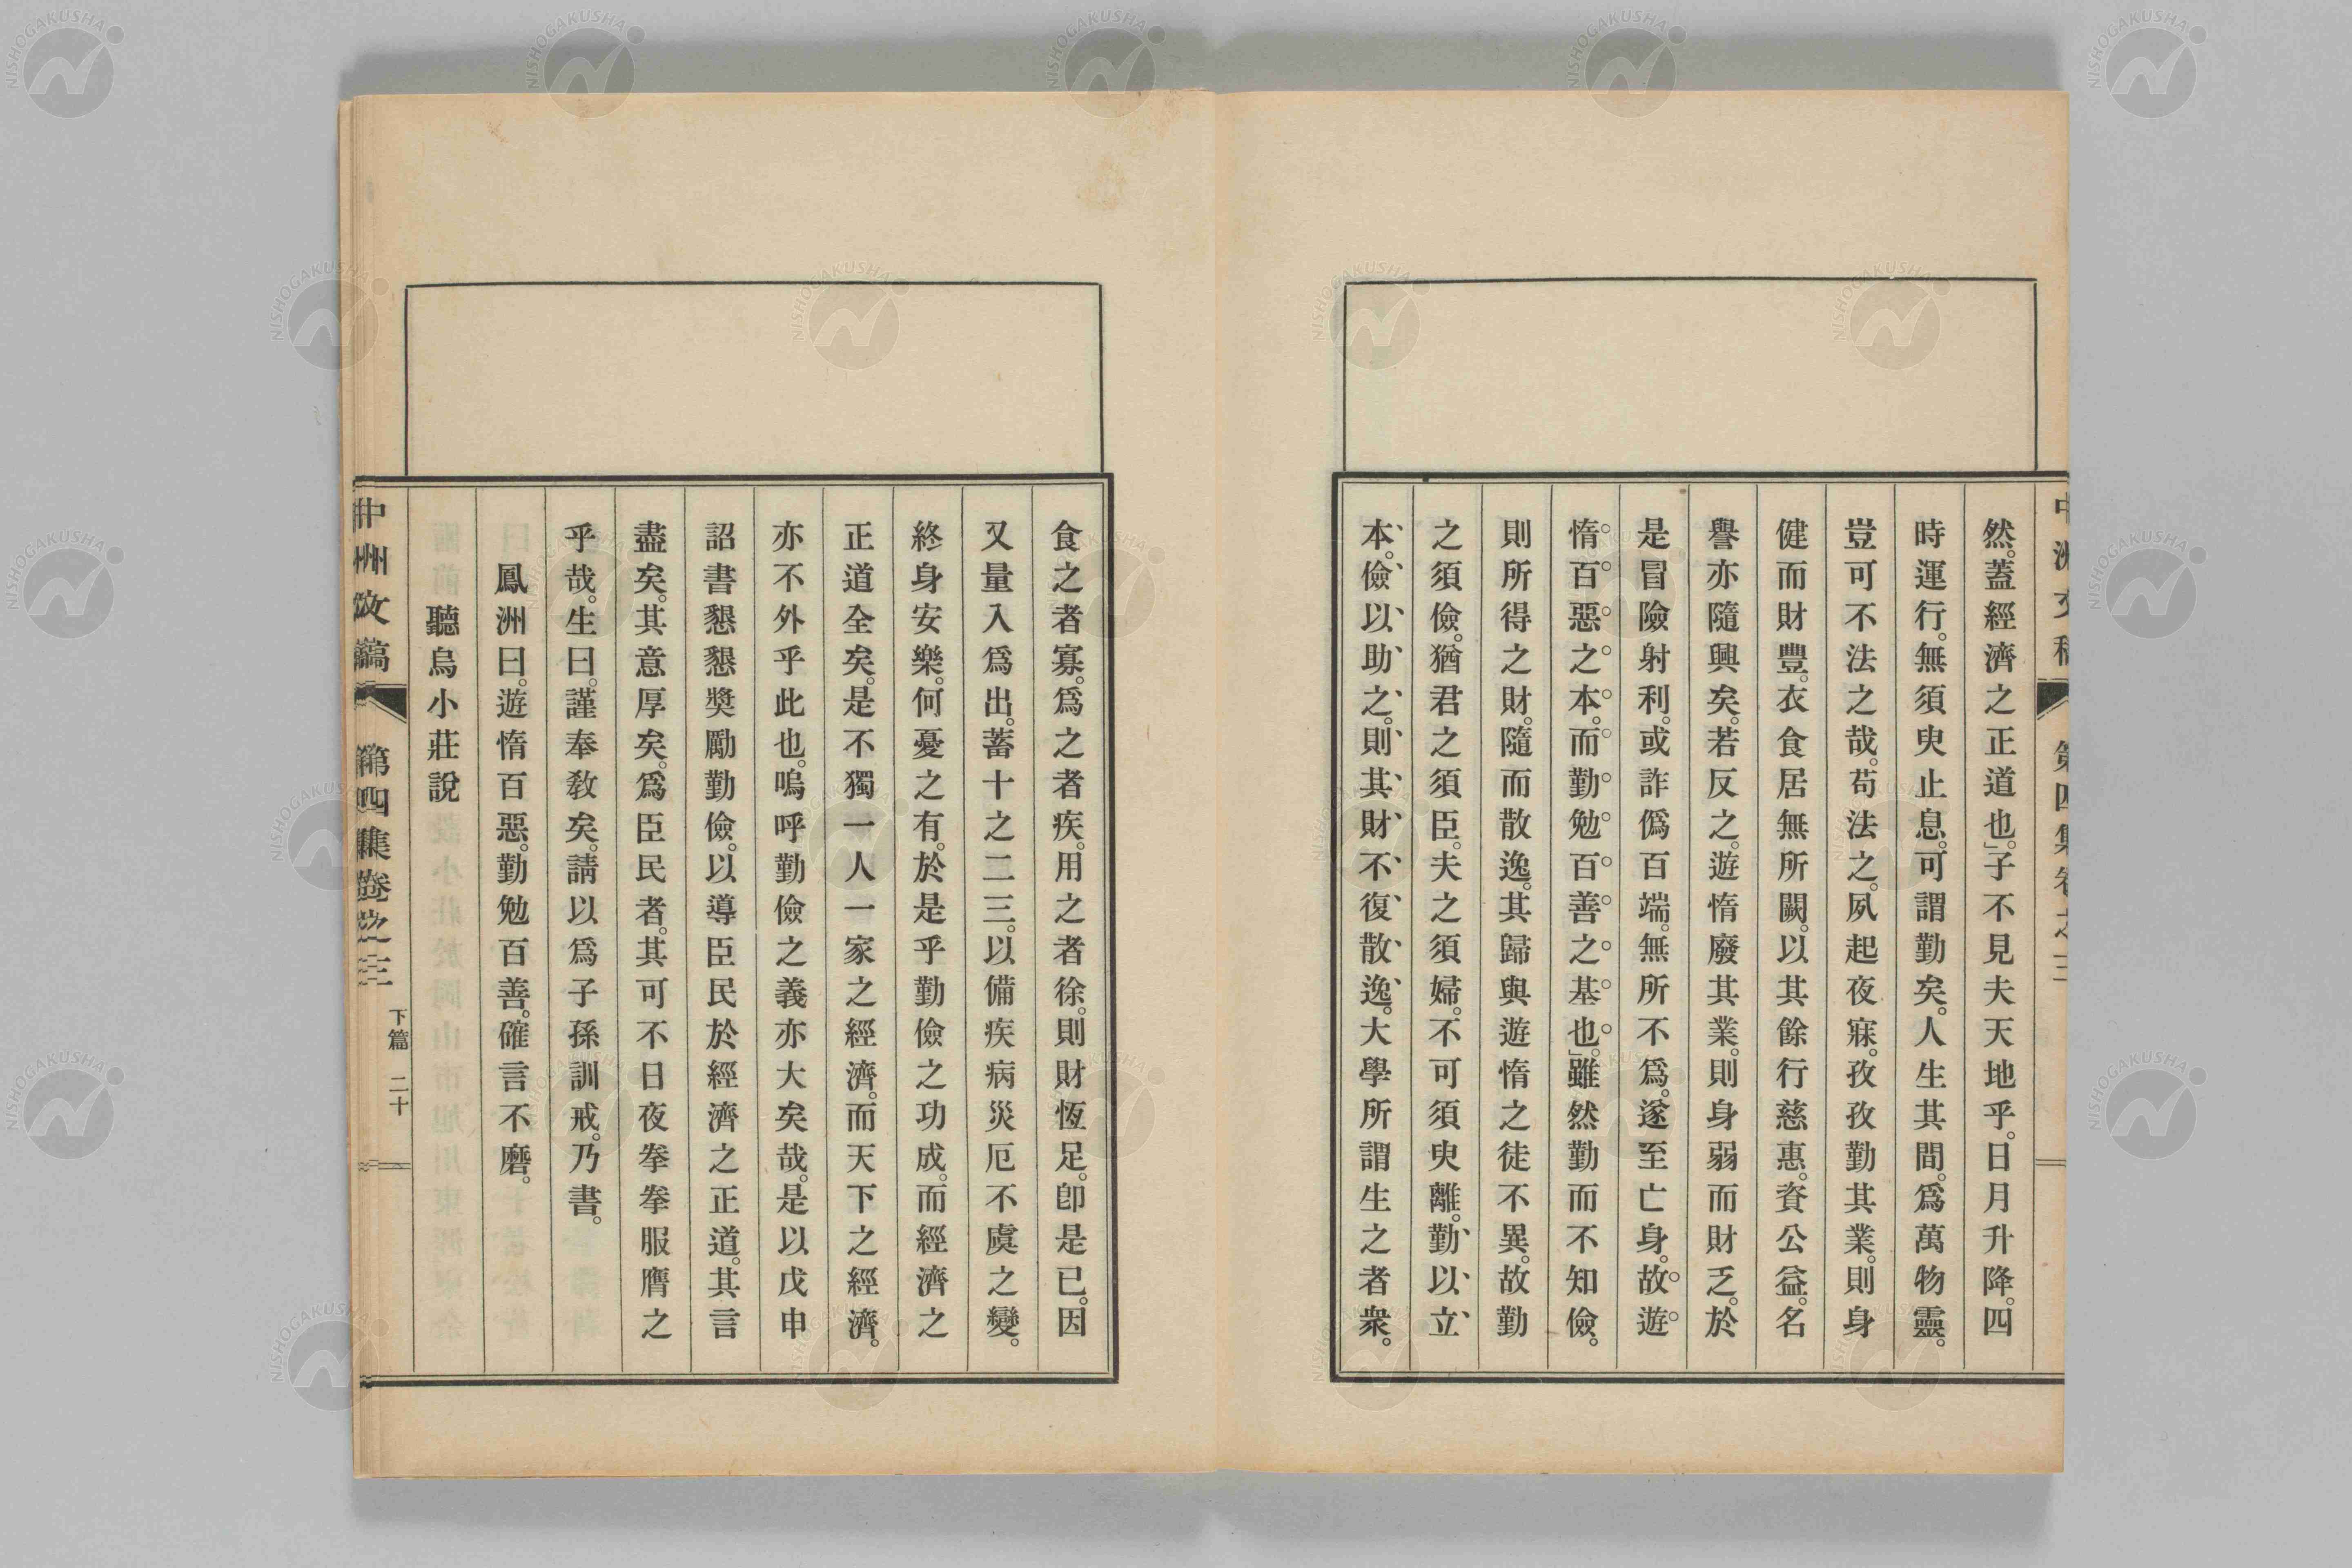 然。蓋經濟之正道也。」子不見夫天地乎。日月升降。四
時運行。無須臾止息。可謂勤矣。人生其間。爲萬物靈。
豈可不法之哉。苟法之。夙起夜寐。孜孜勤其業。則身
健而財豐。衣食居無所闕。以其餘行慈惠。資公益。名
譽亦隨興矣。若反之。遊惰廢其業。則身弱而財乏。於
是冒險射利。或詐僞百端。無所不爲。遂至亡身。故遊
惰百惡之本。而勤勉百善之基也。」雖然勤而不知儉。
則所得之財。隨而散逸。其歸與遊惰之徒不異。故勤
之須儉。猶君之須臣。夫之須婦。不可須臾離。勤以立
本。儉以助之。則其財不復散逸。大學所謂生之者衆。
食之者寡。爲之者疾。用之者徐。則財恆足。卽是已。因
又量入爲出。蓄十之二三。以備疾病災厄不虞之變。
終身安樂。何憂之有。於是乎勤儉之功成。而經濟之
正道全矣。是不獨一人一家之經濟。而天下之經濟。
亦不外乎此也。嗚呼勤儉之義亦大矣哉。是以戊申
詔書懇懇奬勵勤儉。以導臣民於經濟之正道。其言
盡矣。其意厚矣。爲臣民者。其可不日夜拳拳服膺之
乎哉。生曰。謹奉敎矣。請以爲子孫訓戒。乃書。
鳳洲曰。遊惰百惡。勤勉百善。確言不磨。
聽烏小莊說
中洲文稿 第四集卷之三 下篇 二十